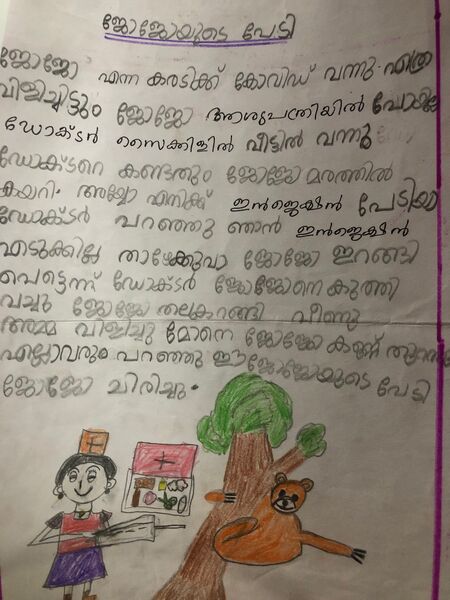 ജോജോയുടെ പേടി
ജോജോ എന്ന കരടിക്ക് കോവിഡ് വന്നു. എത്ര
വിളിച്ചിട്ടും ജോജോ ആശുപത്രിയിൽ പോയില്ല
ഡോക്ടർ സൈക്കിളിൽ വീട്ടിൽ വന്നു
ഡോക്ടറെ കണ്ടതും ജോജോ മരത്തിൽ
കയറി. അയ്യോ എനിക്ക് ഇൻജെക്ഷൻ പേടിയാ
ഡോക്ടർ പറഞ്ഞു ഞാൻ ഇൻജെക്ഷൻ
എടുക്കില്ല താഴേക്കുവാ ജോജോ ഇറങ്ങി
പെട്ടെന്ന് ഡോക്ടർ ജോജോനെ കുത്തി
വച്ചു ജോജോ തലകറങ്ങി വീണു
അമ്മ വിളിച്ചു മോനെ ജോജോ കണ്ണ് തുറന്നു
എല്ലാവരും പറഞ്ഞു ഈ ജോജോയുടെ പേടി
ജോജോ ചിരിച്ചു.